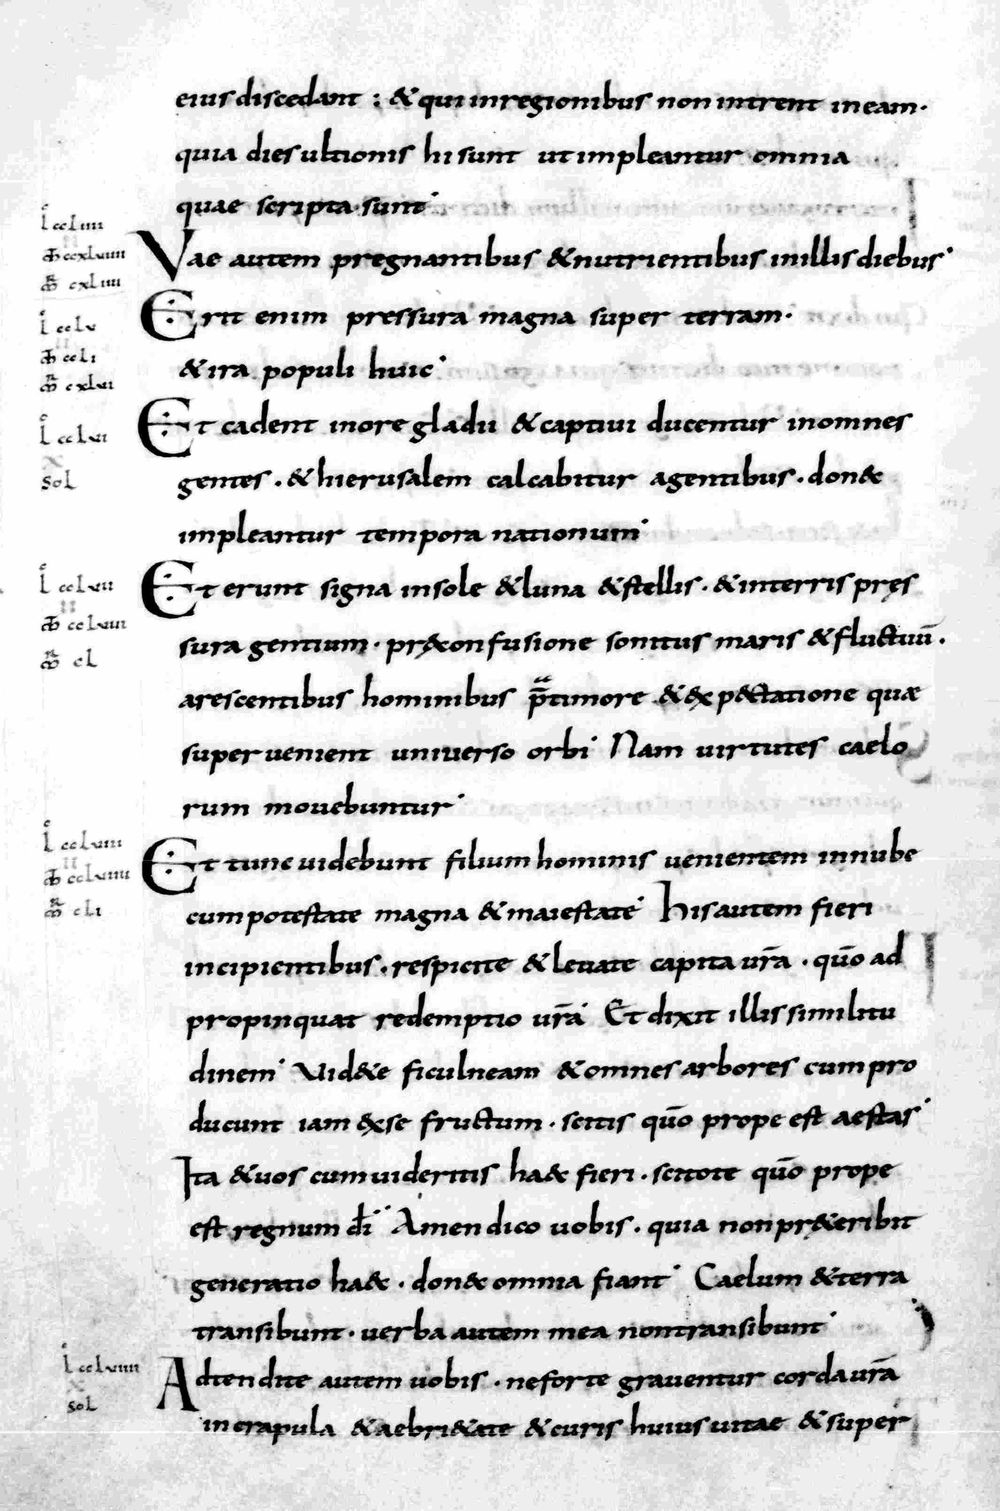 eius discedant : & qui in regionibus non intrent in eam·
quia dies ultionis hi sunt ut impleantur omnia
quae scripta sunt·
Vae autem pregnantibus & nutrientibus in illis diebus·
Erit enim pressura magna super terram·
& ira populi huic·
Et cadent in ore gladii & captiui ducentur in omnes
gentes · & hierusalem calcabitur a gentibus · don&
impleantur tempora nationum·
Et erunt signa in sole & luna & stellis · & in terris pres
sura gentium · pr& confusione sonitus maris & fluctuū ·
arescentibus hominibus p̄ timore & exp&tatione quae
superuenient uniuerso orbi· Nam uirtutes caelo
rum mouebuntur·
Et tunc uidebunt filium hominis uenientem in nube
cum potestate magna & maiestate· His autem fieri
incipientibus · respicite & leuate capita ur̄a · quō ad
propinquat redemptio ur̄a· Et dixit illis similitu
dinem· Uid&e ficulneam & omnes arbores cum pro
ducunt iam exse fructum · scitis quō prope est aestas·
Ita & uos cum uideritis ha& fieri · scitote quō prope
est regnum dī· Amen dico uobis · quia non pr&eribit
generatio ha& · don& omnia fiant· Caelum & terra
transibunt · uerba autem mea non transibunt·
Adtendite autem uobis · ne forte grauentur corda ur̄a
in crapula & aebri&ate & curis huius uitae & super
l ccliiii
l cclv
l cclvi
sol
l cclvii
l cclviii
l cclviiii
sol